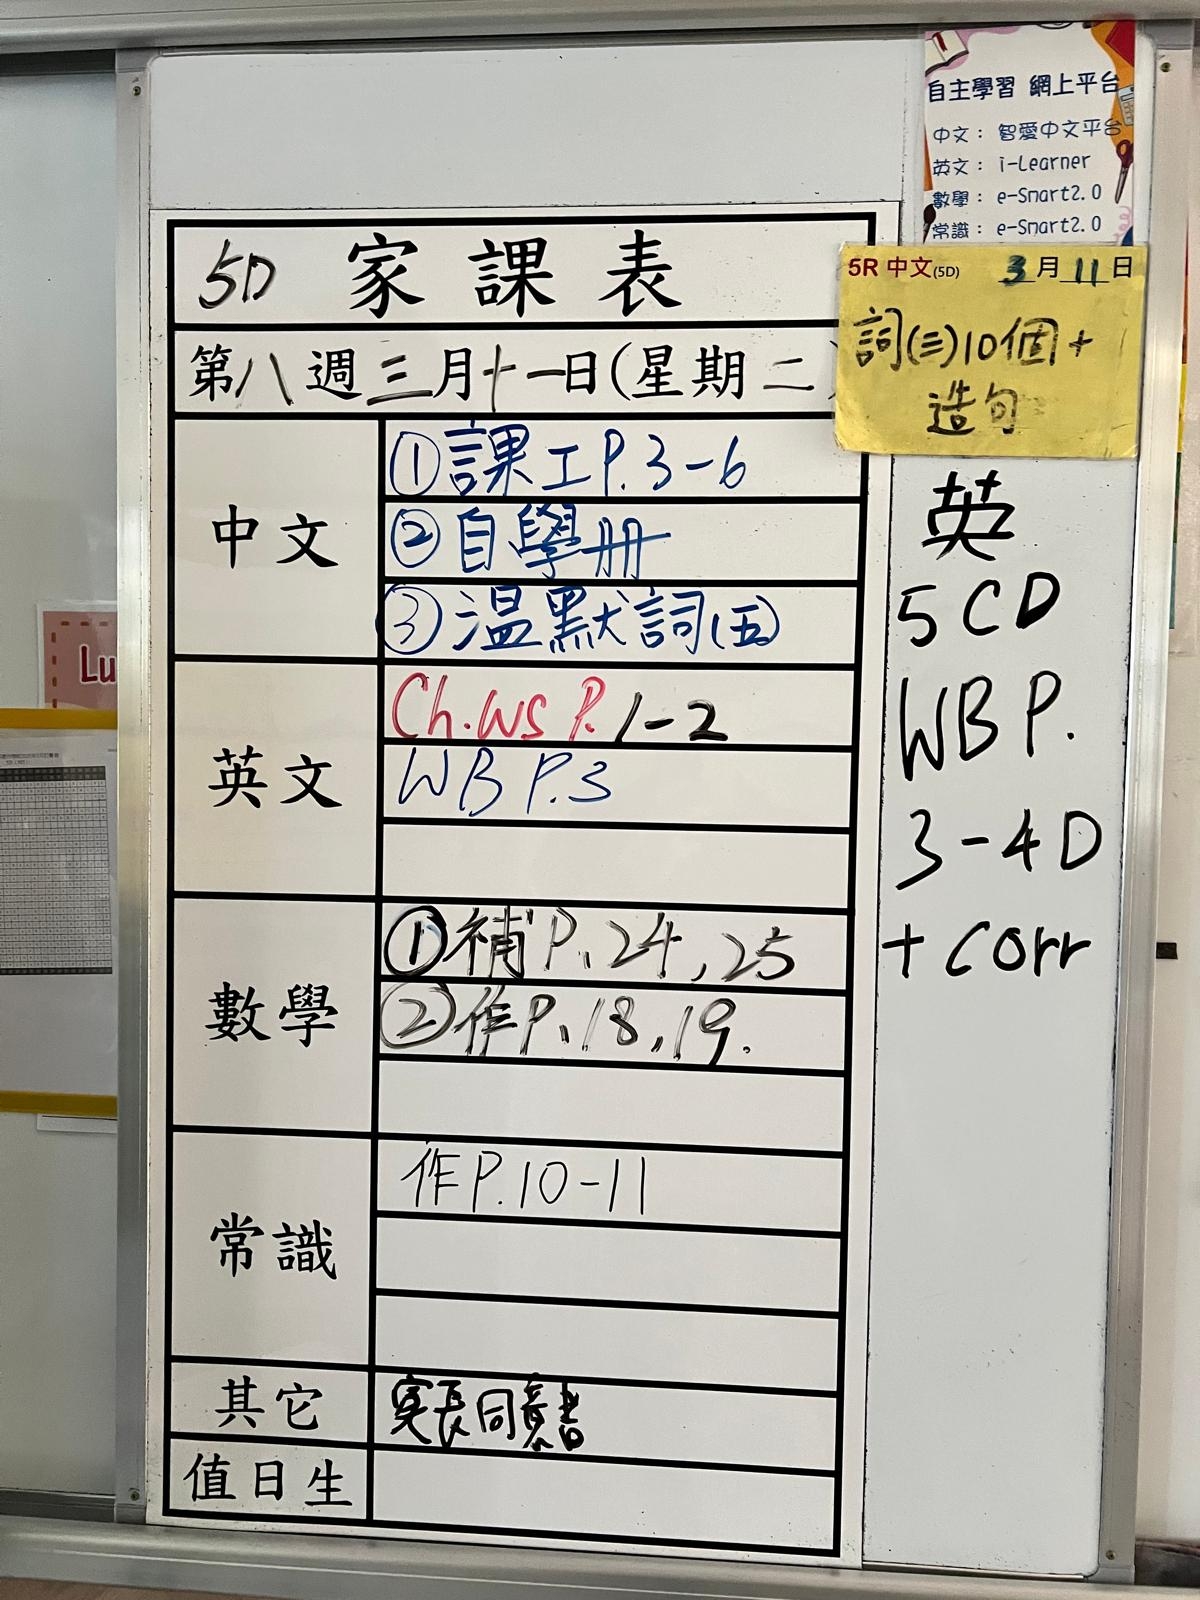 自主學習 網上平台
中文： 智愛中文平台
英文： i-Learner
數學： e-Smart2.0
常識： e-Smart2.0
5R 中文(5D) 3月11日
詞(三)10個+
造句
5D 家課表
第八週三月十一日(星期二)
中文
①課工P.3-6
②自學册
③溫默詞(五)
英文
Ch.WS P.1-2
WB P.3
數學
①補P.24,25
②作P.18,19.
常識
作P.10-11
其它
家長同意書
值日生
英
5CD
WB P.
3-4D
+ corr
Lu